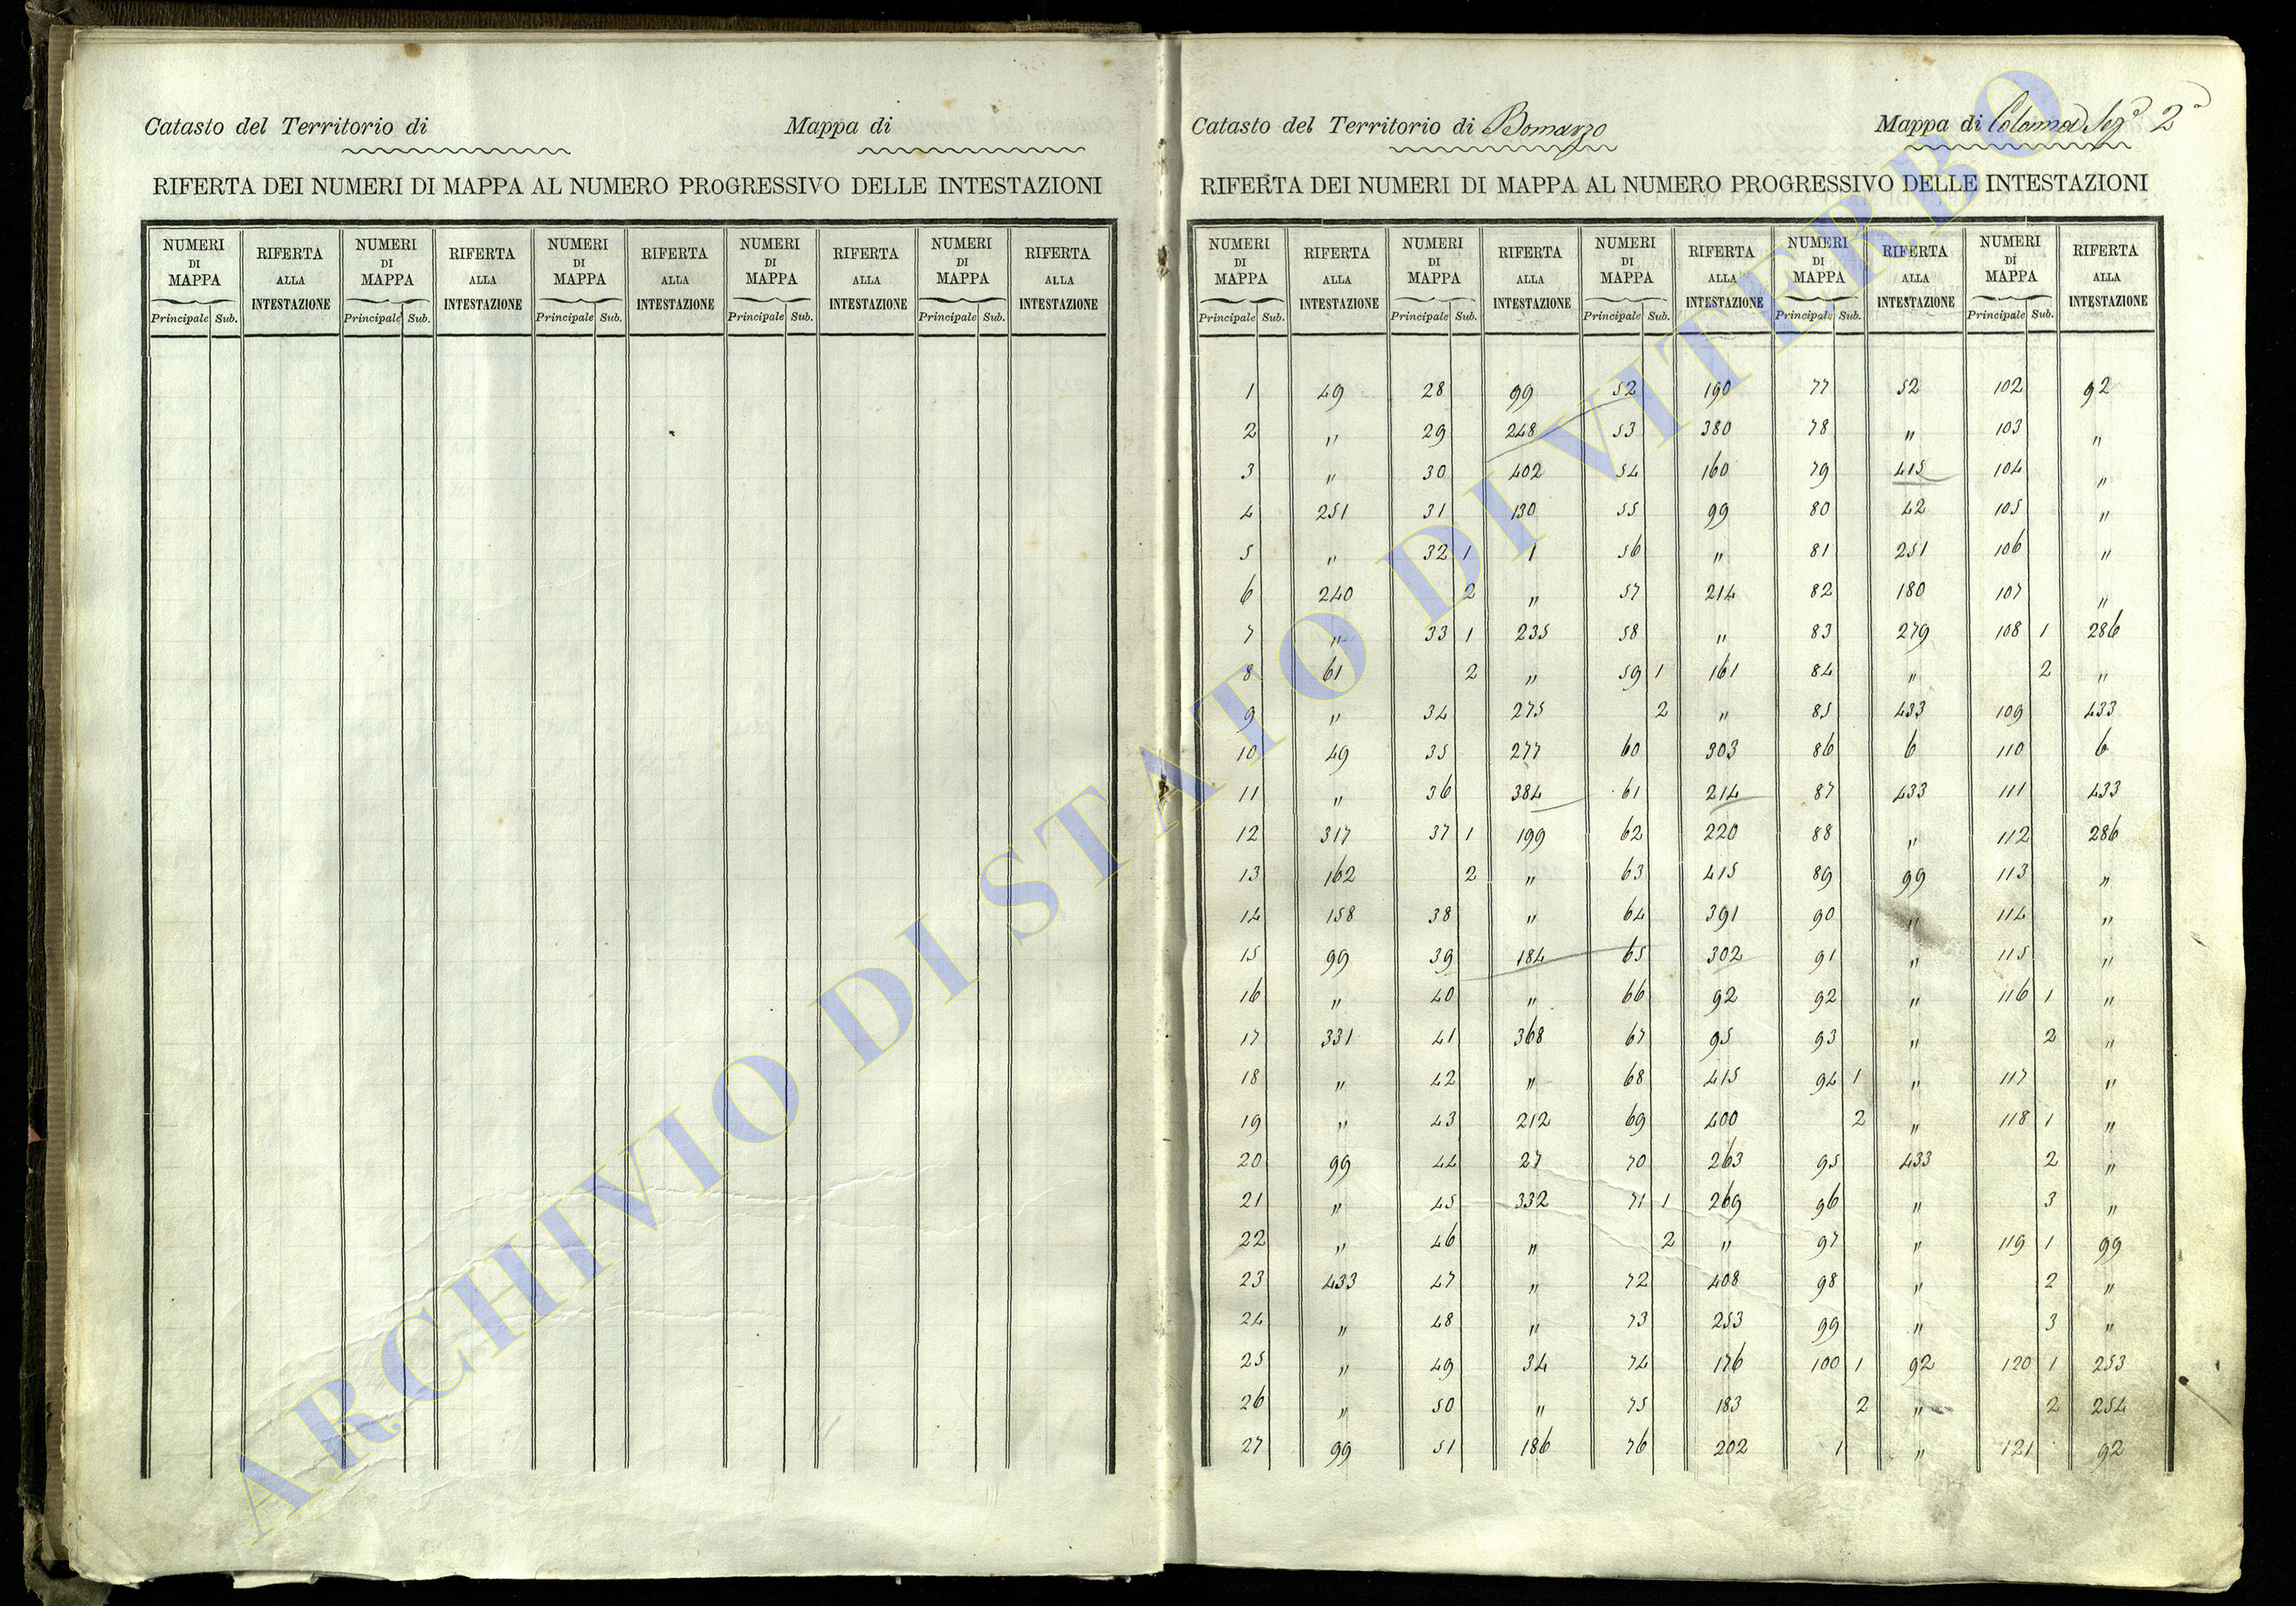 Catasto del Territorio di Mappa di
RIFERTA DEI NUMERI DI MAPPA AL NUMERO PROGRESSIVO DELLE INTESTAZIONI
NUMERI DI MAPPA RIFERTA ALLA INTESTAZIONE NUMERI DI MAPPA RIFERTA ALLA INTESTAZIONE NUMERI DI MAPPA RIFERTA ALLA INTESTAZIONE NUMERI DI MAPPA RIFERTA ALLA INTESTAZIONE NUMERI DI MAPPA RIFERTA ALLA INTESTAZIONE
Principale Sub. Principale Sub. Principale Sub. Principale Sub. Principale Sub.
Catasto del Territorio di Bomarzo Mappa di Colonna Sez.ª 2ª
RIFERTA DEI NUMERI DI MAPPA AL NUMERO PROGRESSIVO DELLE INTESTAZIONI
NUMERI DI MAPPA RIFERTA ALLA INTESTAZIONE NUMERI DI MAPPA RIFERTA ALLA INTESTAZIONE NUMERI DI MAPPA RIFERTA ALLA INTESTAZIONE NUMERI DI MAPPA RIFERTA ALLA INTESTAZIONE NUMERI DI MAPPA RIFERTA ALLA INTESTAZIONE
Principale Sub. Principale Sub. Principale Sub. Principale Sub. Principale Sub.
1 49 28 99 52 190 77 52 102 92
2 " 29 248 53 380 78 " 103 "
3 " 30 402 54 160 79 415 104 "
4 251 31 130 55 99 80 42 105 "
5 " 32 1 1 56 " 81 251 106 "
6 240 2 " 57 214 82 180 107 "
7 " 33 1 235 58 " 83 279 108 1 286
8 61 2 " 59 1 161 84 " 2 "
9 " 34 275 2 " 85 433 109 433
10 49 35 277 60 303 86 6 110 6
11 " 36 384 61 214 87 433 111 433
12 317 37 1 199 62 220 88 " 112 286
13 162 2 " 63 415 89 99 113 "
14 158 38 " 64 391 90 " 114 "
15 99 39 184 65 302 91 " 115 "
16 " 40 " 66 92 92 " 116 1 "
17 331 41 368 67 95 93 " 2 "
18 " 42 " 68 415 94 1 " 117 "
19 " 43 212 69 400 2 " 118 1 "
20 99 44 27 70 263 95 433 2 "
21 " 45 332 71 1 269 96 " 3 "
22 " 46 " 2 " 97 " 119 1 99
23 433 47 " 72 408 98 " 2 "
24 " 48 " 73 253 99 " 3 "
25 " 49 34 74 176 100 1 92 120 1 253
26 " 50 " 75 183 2 " 2 254
27 99 51 186 76 202 1 " 121 92
ARCHIVIO DI STATO DI VITERBO